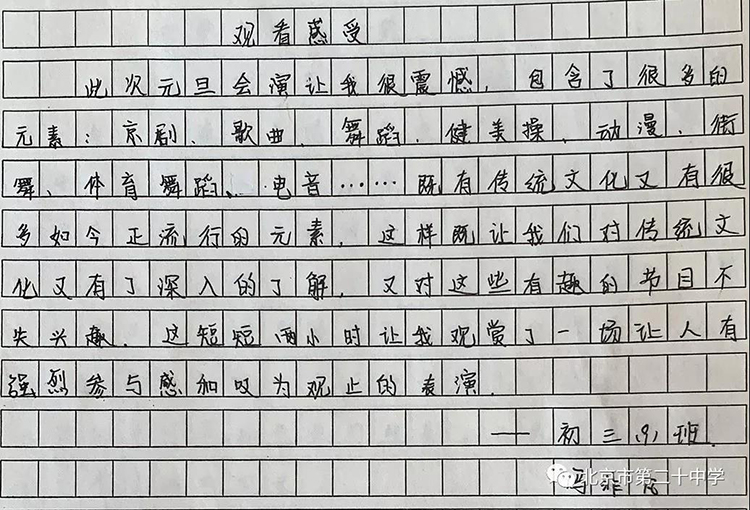 观看感受
此次元旦会演让我很震憾，包含了很多的
元素：京剧、歌曲、舞蹈、健美操、动漫、街
舞、体育舞蹈、电音……既有传统文化又有很
多如今正流行的元素，这样既让我们对传统文
化又有了深入的了解，又对这些有趣的节目不
失兴趣．这短短两小时让我观赏了一场让人有
强烈参与感和叹为观止的表演．
——初三(9)班．
冯非
北京市第二十中学